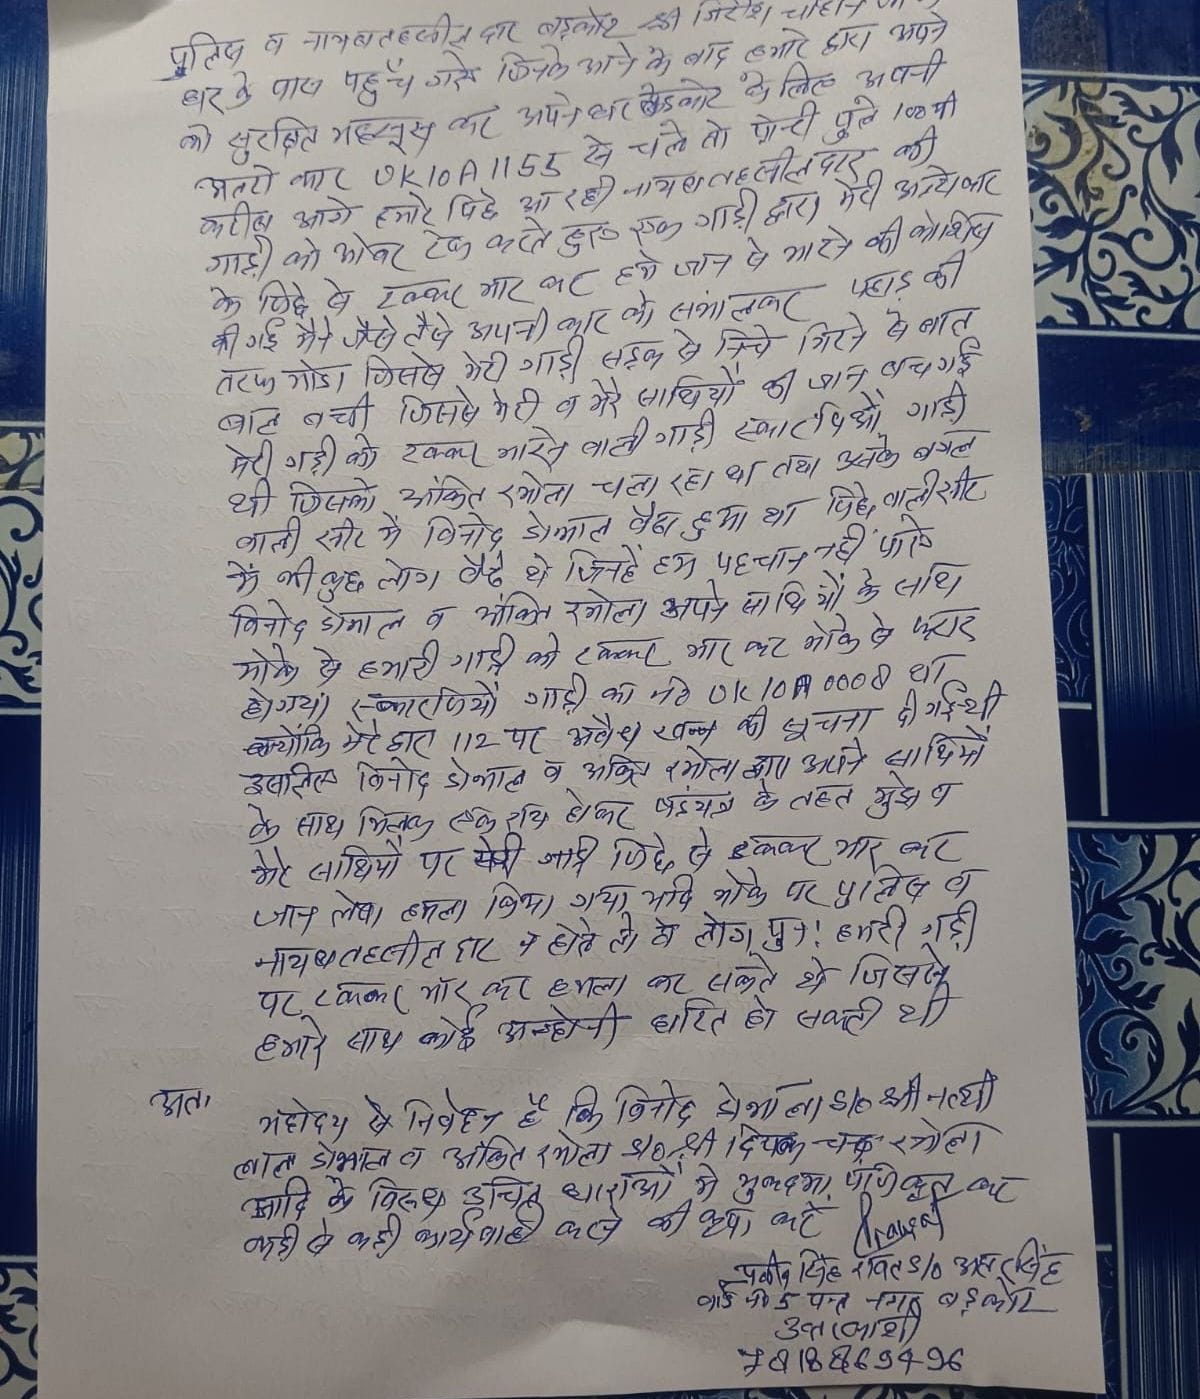 पुलिस व नायब तहसीलदार बड़कोट श्री जितेश चौहान
घर के पास पहुँच गये जिनके आने के बाद हमारे द्वारा अपने
को सुरक्षित महसूस कर अपने घर बड़कोट के लिए अपनी
अल्टो कार UK10A1155 से चले तो पोन्टी पुल 100 मी
करीब आगे हमारे पिछे आ रही नायब तहसीलदार की
गाड़ी को ओवर टेक करते हुए एक गाड़ी द्वारा मेरी अल्टो कार
के पिछे से टक्कर मार कर हमे जान से मारने की कोशिश
की गई मैने जैसे तैसे अपनी कार को संभालकर पहाड़ की
तरफ मोडा जिससे मेरी गाड़ी सड़क से निचे गिरने से बाल
बाल बची जिससे मेरी व मेरे साथियों की जान बच गई
मेरी गाड़ी को टक्कर मारने वाली गाड़ी स्कारपिओ गाड़ी
थी जिसको अंकित रमोला चला रहा था तथा उसके बगल
वाली सीट मे विनोद डोभाल बैठा हुआ था पिछे वाली सीट
में भी कुछ लोग बैठे थे जिन्हें हम पहचान नहीं पाये
विनोद डोभाल व अंकित रमोला अपने साथियों के साथ
मोके से हमारी गाड़ी को टक्कर मार कर मोके से फरार
हो गया स्कारपियों गाड़ी का न० UK10A0008 था
क्योंकि मेरे द्वारा 112 पर अवैध खनन की सूचना दी गई थी
इसलिए विनोद डोभाल व अंकित रमोला द्वारा अपने साथियों
के साथ मिलकर एक राय होकर षडंयत्र के तहत मुझे व
मेरे साथियों पर मेरी गाड़ी पिछे से टक्कर मार कर
जान लेवा हमला किया गया यदि मोके पर पुलिस व
नायब तहसीलदार न होते तो वे लोग पुनः हमारी गाड़ी
पर टक्कर मार कर हमला कर सकते थे जिससे
हमारे साथ कोई अनहोनी घटित हो सकती थी
अतः महोदय से निवेदन है कि विनोद डोभाल S/o श्री नत्थी
लाल डोभाल व अंकित रमोला S/o श्री दिपक चन्द रमोला
आदि के विरुध उचित धाराओं मे मुकदमा पंजिकृत कर
कड़ी से कड़ी कार्यवाही करने की कृपा करें
प्रवीन सिंह रावत S/o अमर सिंह
वार्ड न० 5 पन्त नगर बड़कोट
उत्तरकाशी